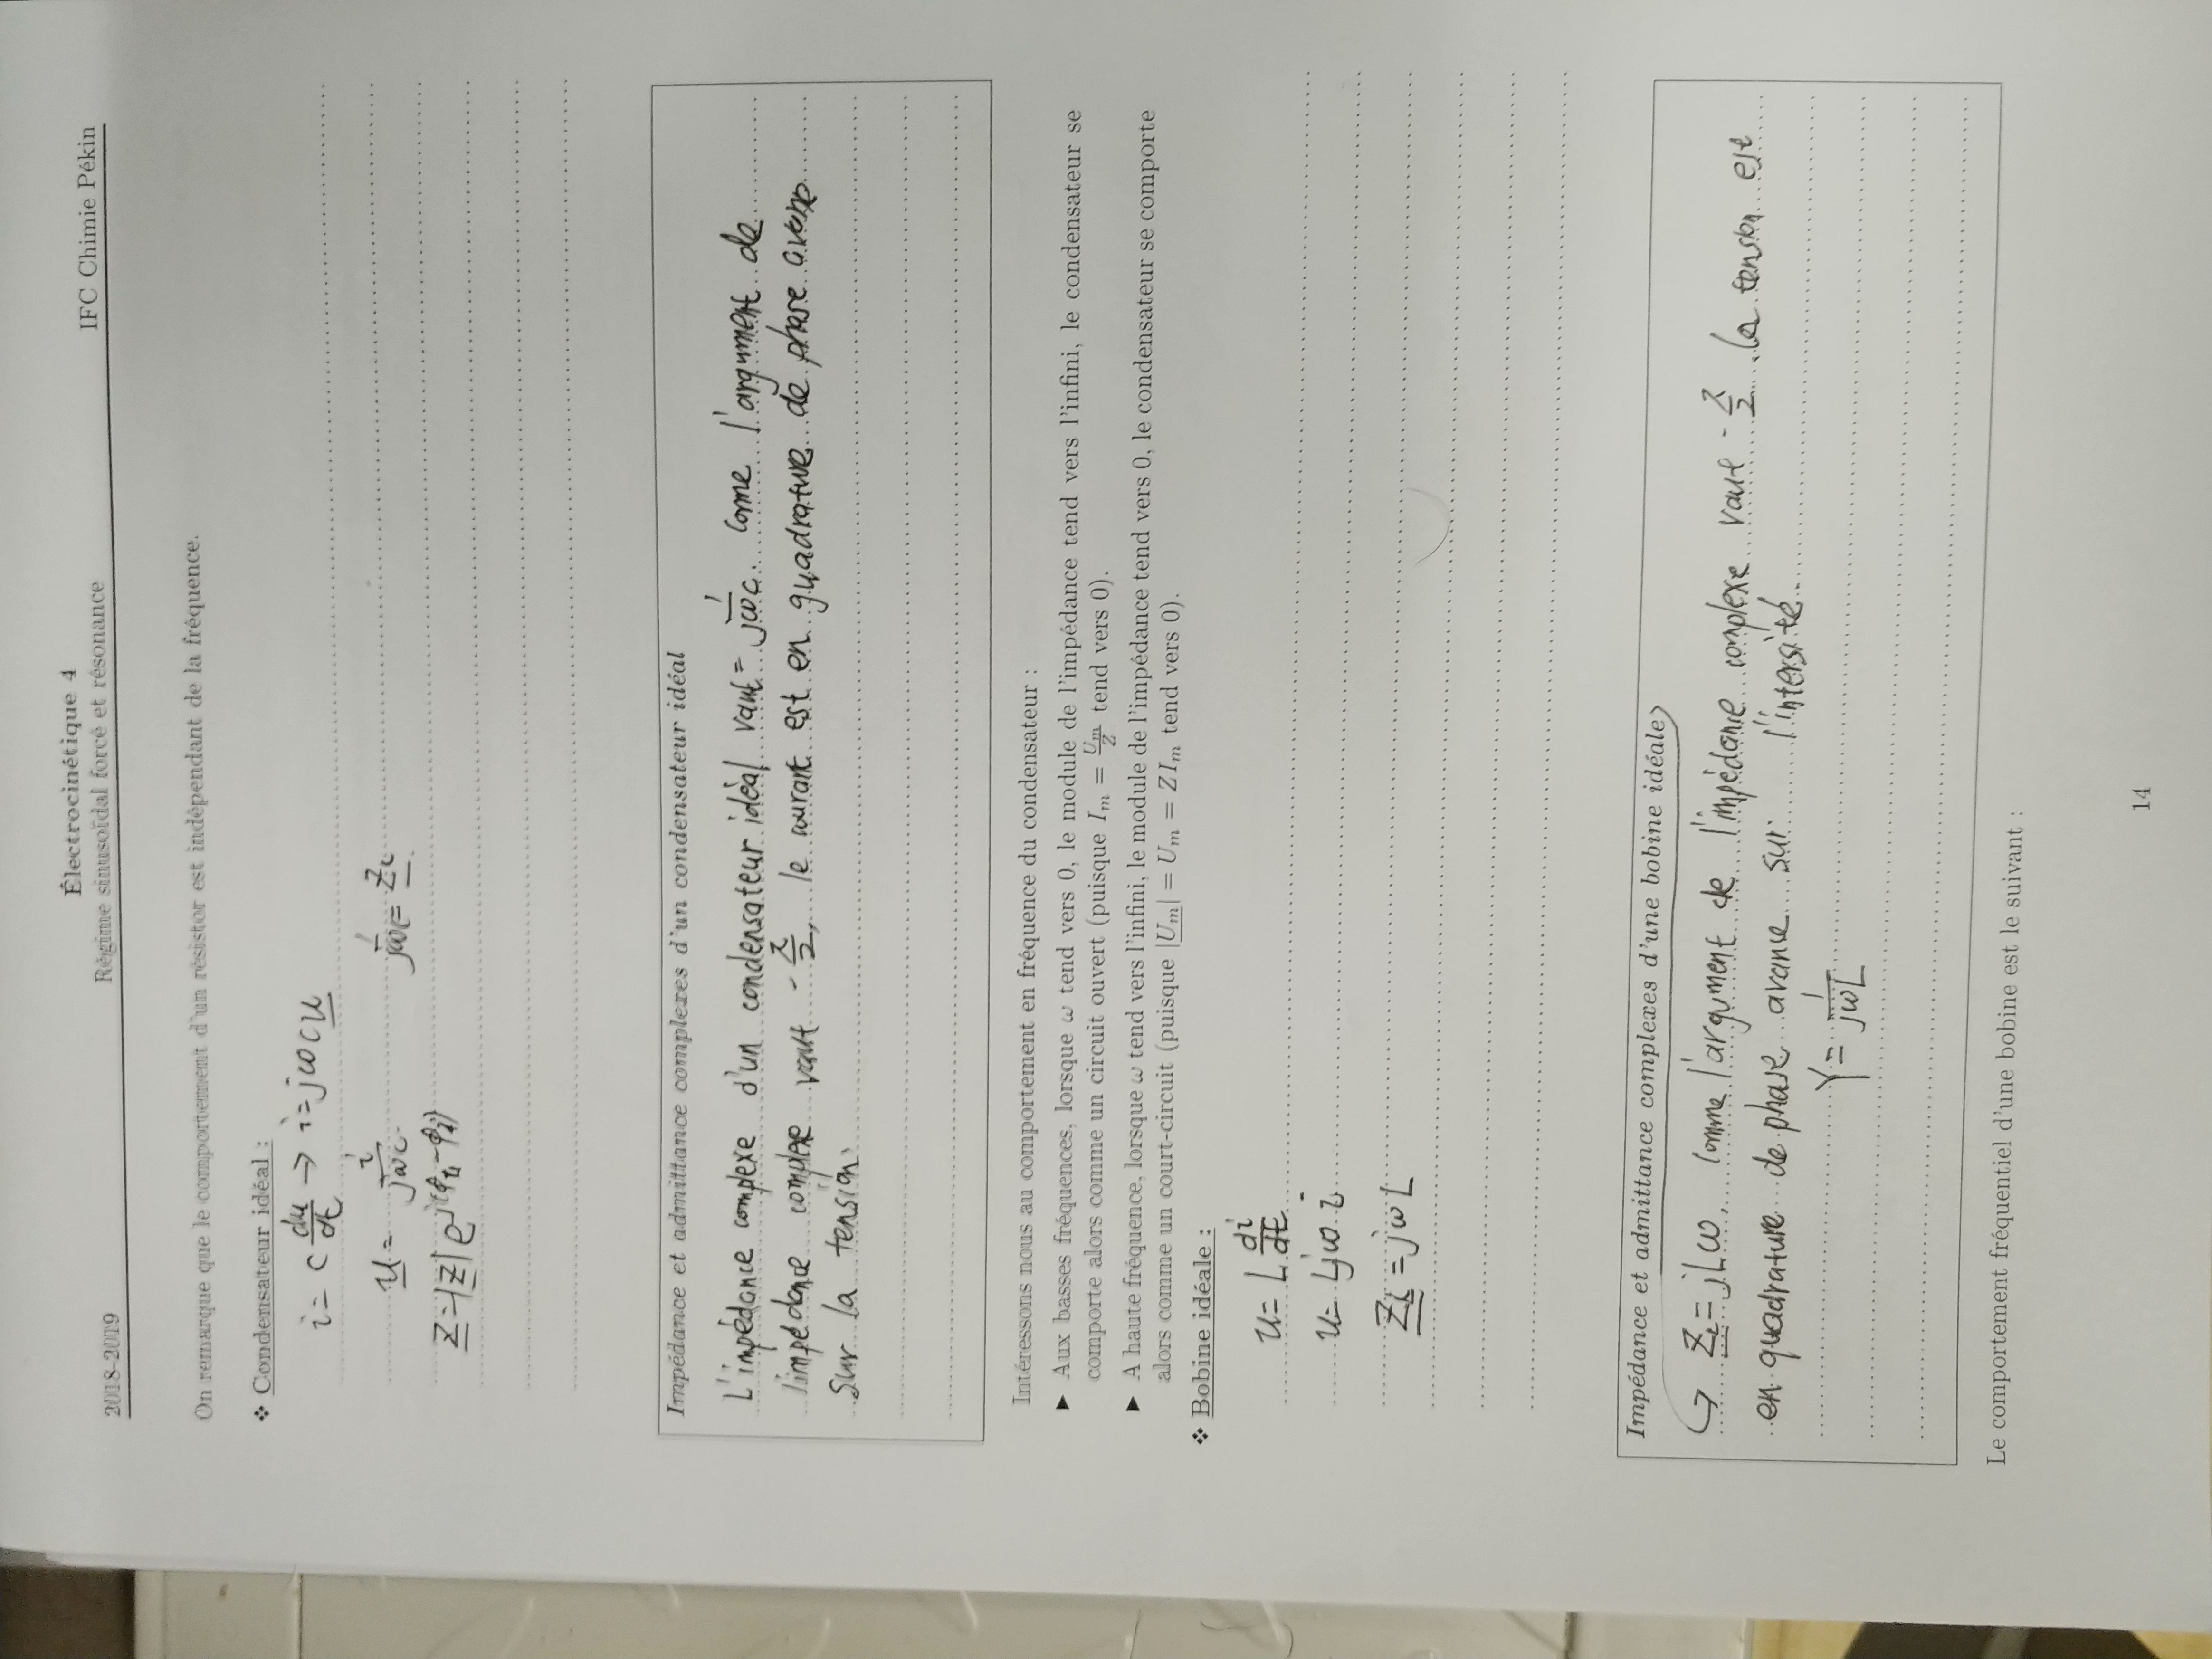 Électrocinétique 4
2018-2019 Régime sinusoïdal forcé et résonance IFC Chimie Pékin
On remarque que le comportement d'un résistor est indépendant de la fréquence.
❖ Condensateur idéal :
i = C du/dt → i = jωC u
u = i/jωC 1/jωC = Zc
Z = |Z| e^j(φu-φi)
Impédance et admittance complexes d'un condensateur idéal
L'impédance complexe d'un condensateur idéal vaut = 1/jωC. Comme l'argument de
l'impédance complexe vaut -π/2, le courant est en quadrature de phase avance
sur la tension.
Intéressons nous au comportement en fréquence du condensateur :
▶ Aux basses fréquences, lorsque ω tend vers 0, le module de l'impédance tend vers l'infini, le condensateur se
comporte alors comme un circuit ouvert (puisque Im = Um/Z tend vers 0).
▶ A haute fréquence, lorsque ω tend vers l'infini, le module de l'impédance tend vers 0, le condensateur se comporte
alors comme un court-circuit (puisque |Um| = Um = ZIm tend vers 0).
❖ Bobine idéale :
u = L di/dt
u = Ljω i
ZL = jωL
Impédance et admittance complexes d'une bobine idéale
ZL = jLω, comme l'argument de l'impédance complexe vaut -π/2 . la tension est
en quadrature de phase avance sur l'intersité.
Y = 1/jωL
Le comportement fréquentiel d'une bobine est le suivant :
14